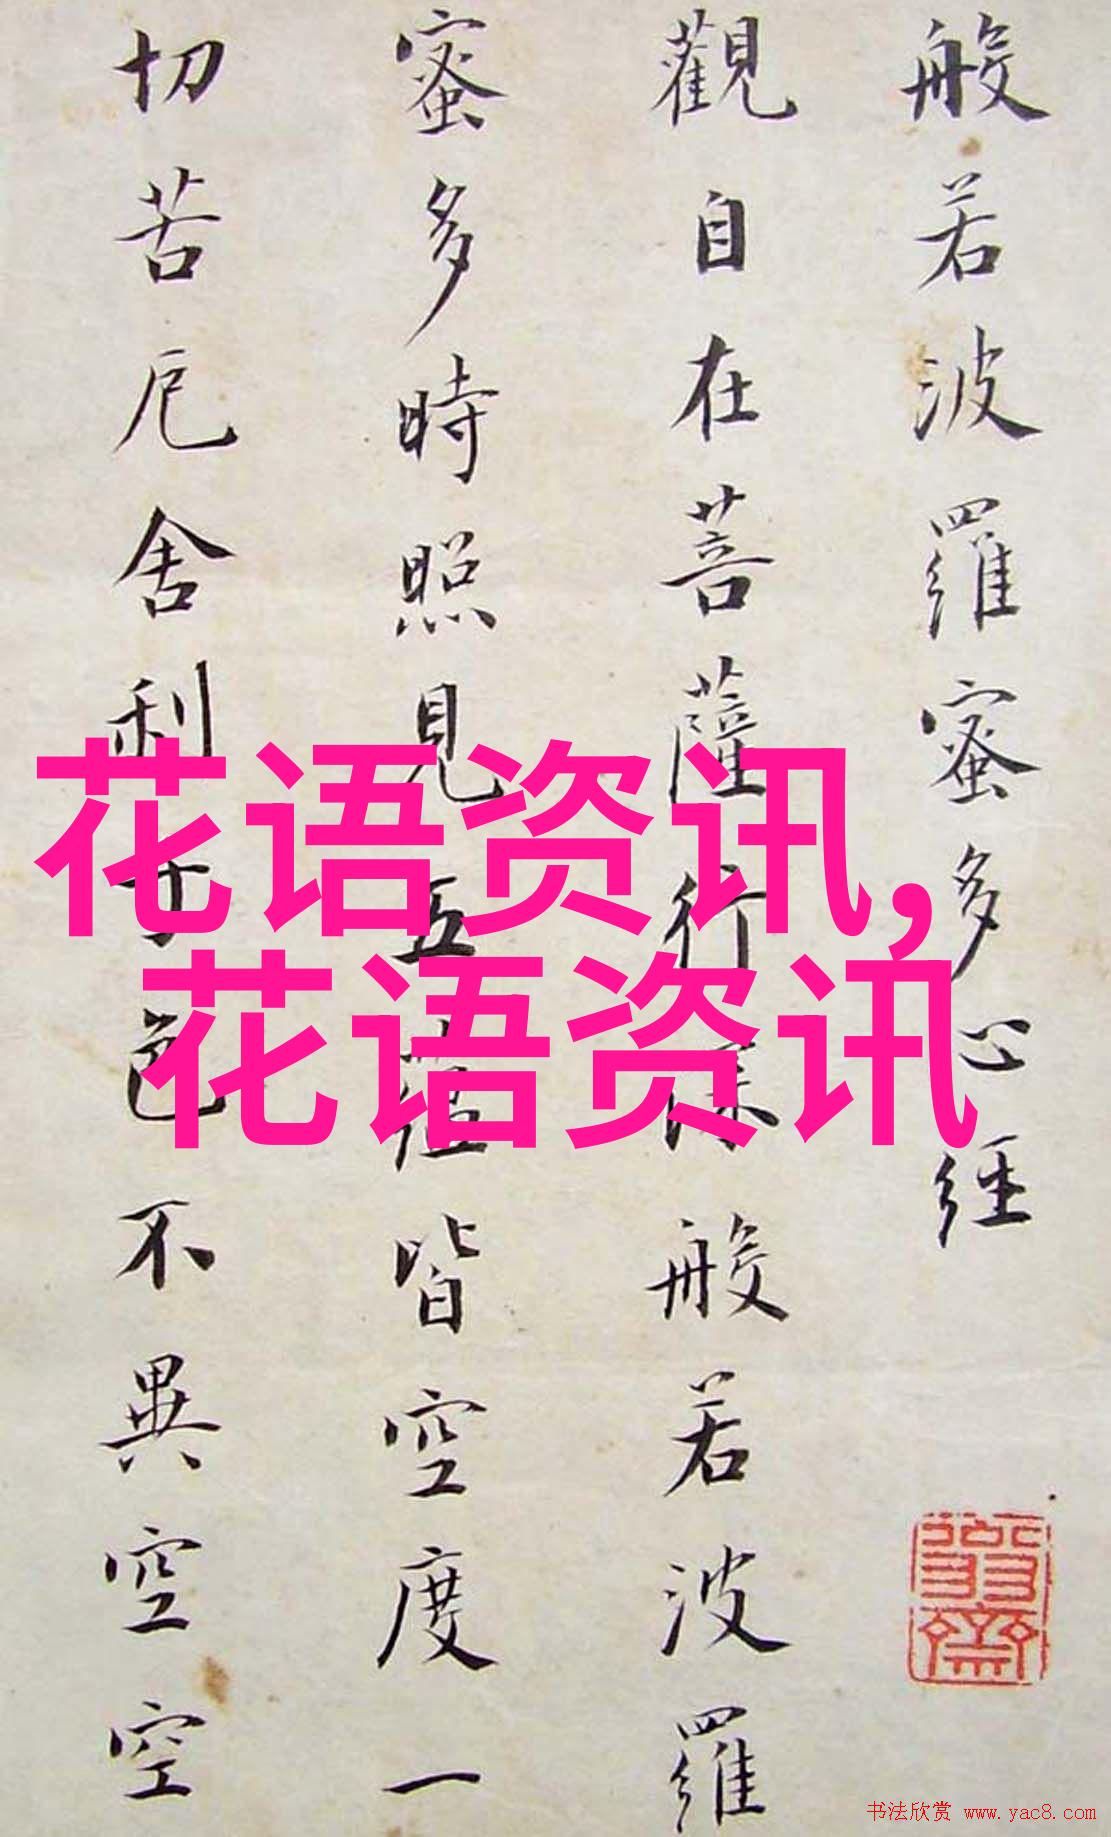 般若波羅蜜多心經
觀自在菩薩行深般若波羅
蜜多時照見五蘊皆空度一
切苦厄舍利子色不異空空
花语资讯,
花语资讯
书法欣赏 www.yac8.com